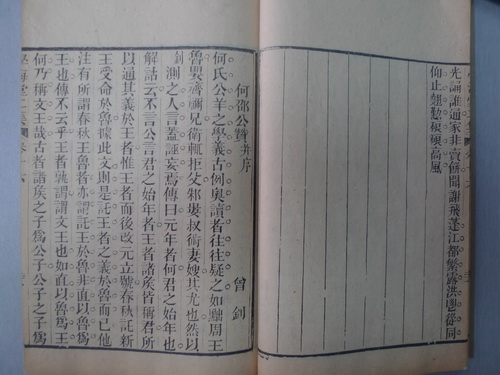 先誦誰通家非賣餅閣謝飛蓬江都繁露洪鬯同
仰止翹懃高風
何邵公贊并序
曾釗
何氏公羊之學義古例奧讀者往往疑之如黜周王
魯與濟禰兄衛輒拒父邾婁叔術妻嫂其尤也然以
測之人言蓋誣妄焉傳曰元年者何君之始年也
解詁云不言公言君之始年者王者諸矦皆稱君所
以通其義於王者惟王者而後改元立號春秋託新
王受命於魯據此文則是託王者之義於魯而已他
注有所謂春秋王魯者亦謂託王於魯非直以魯爲
王也傳不云乎王者孰謂謂文王也如直以魯爲王
何乃稱文王哉古者諸矦之子爲公子公子之子爲
學海堂二集